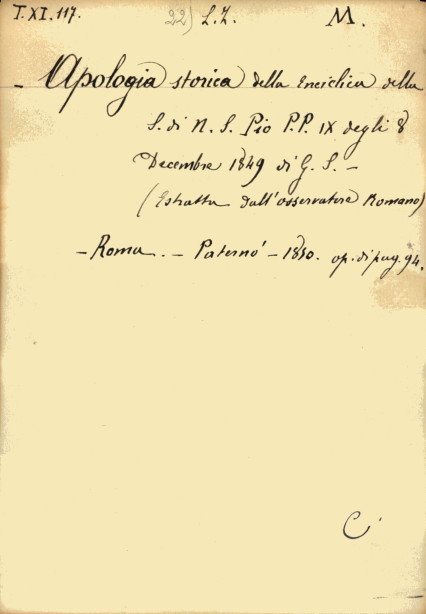 T. XI. 117. 22) L. Z. M.
- Apologia storica della Enciclica della
S. di N. S. Pio P.P. IX degli 8
Decembre 1849 di G. S. -
(Estratta dall'osservatore Romano)
- Roma. - Paternò - 1850. op. di pag. 94.
C